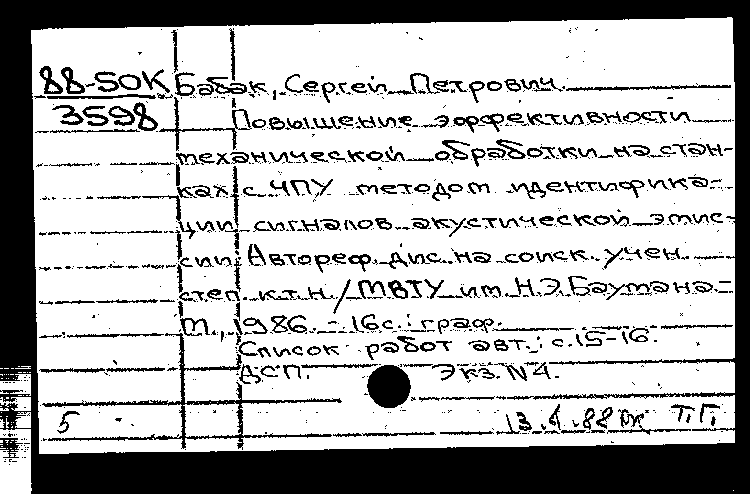 88-5OK Бабак, Сергей Петрович.
3598 Повышение эффективности
механической обработки на стан-
ках с ЧПУ методом идентифика-
ции сигналов акустической эмис-
сии. Автореф. дис. на соиск. учен.
степ. к.т.н. / МВТУ им. Н.Э. Баумана.-
М., 1986. - 16 с.: граф.
Список работ авт.: с. 15-16.
ДСП. Экз. N 4.
5 13.4.88 Т.Г.